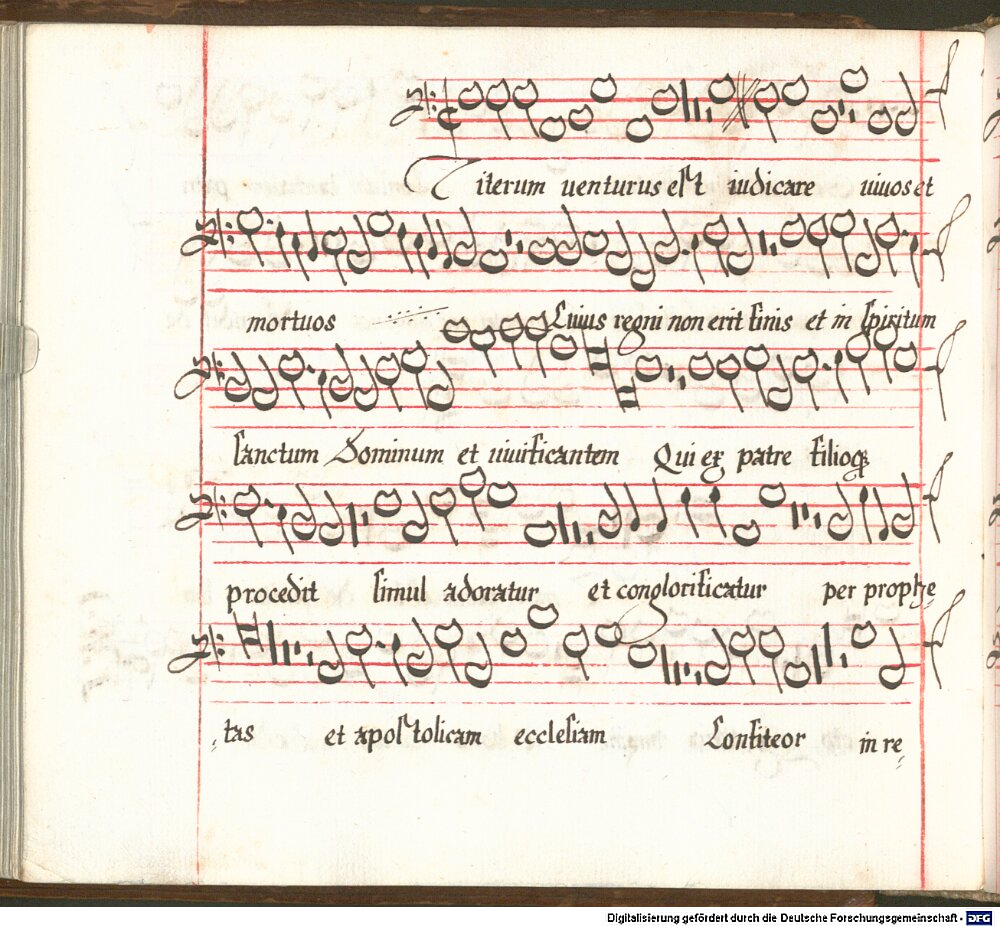 Et iterum uenturus est iudicare uiuos et
mortuos Cuius regni non erit finis et in spiritum
sanctum Dominum et uiuificantem Qui ex patre filioqꝫ
procedit simul adoratur et conglorificatur per prophe
tas et apostolicam ecclesiam Confiteor in re
Digitalisierung gefördert durch die Deutsche Forschungsgemeinschaft - DFG